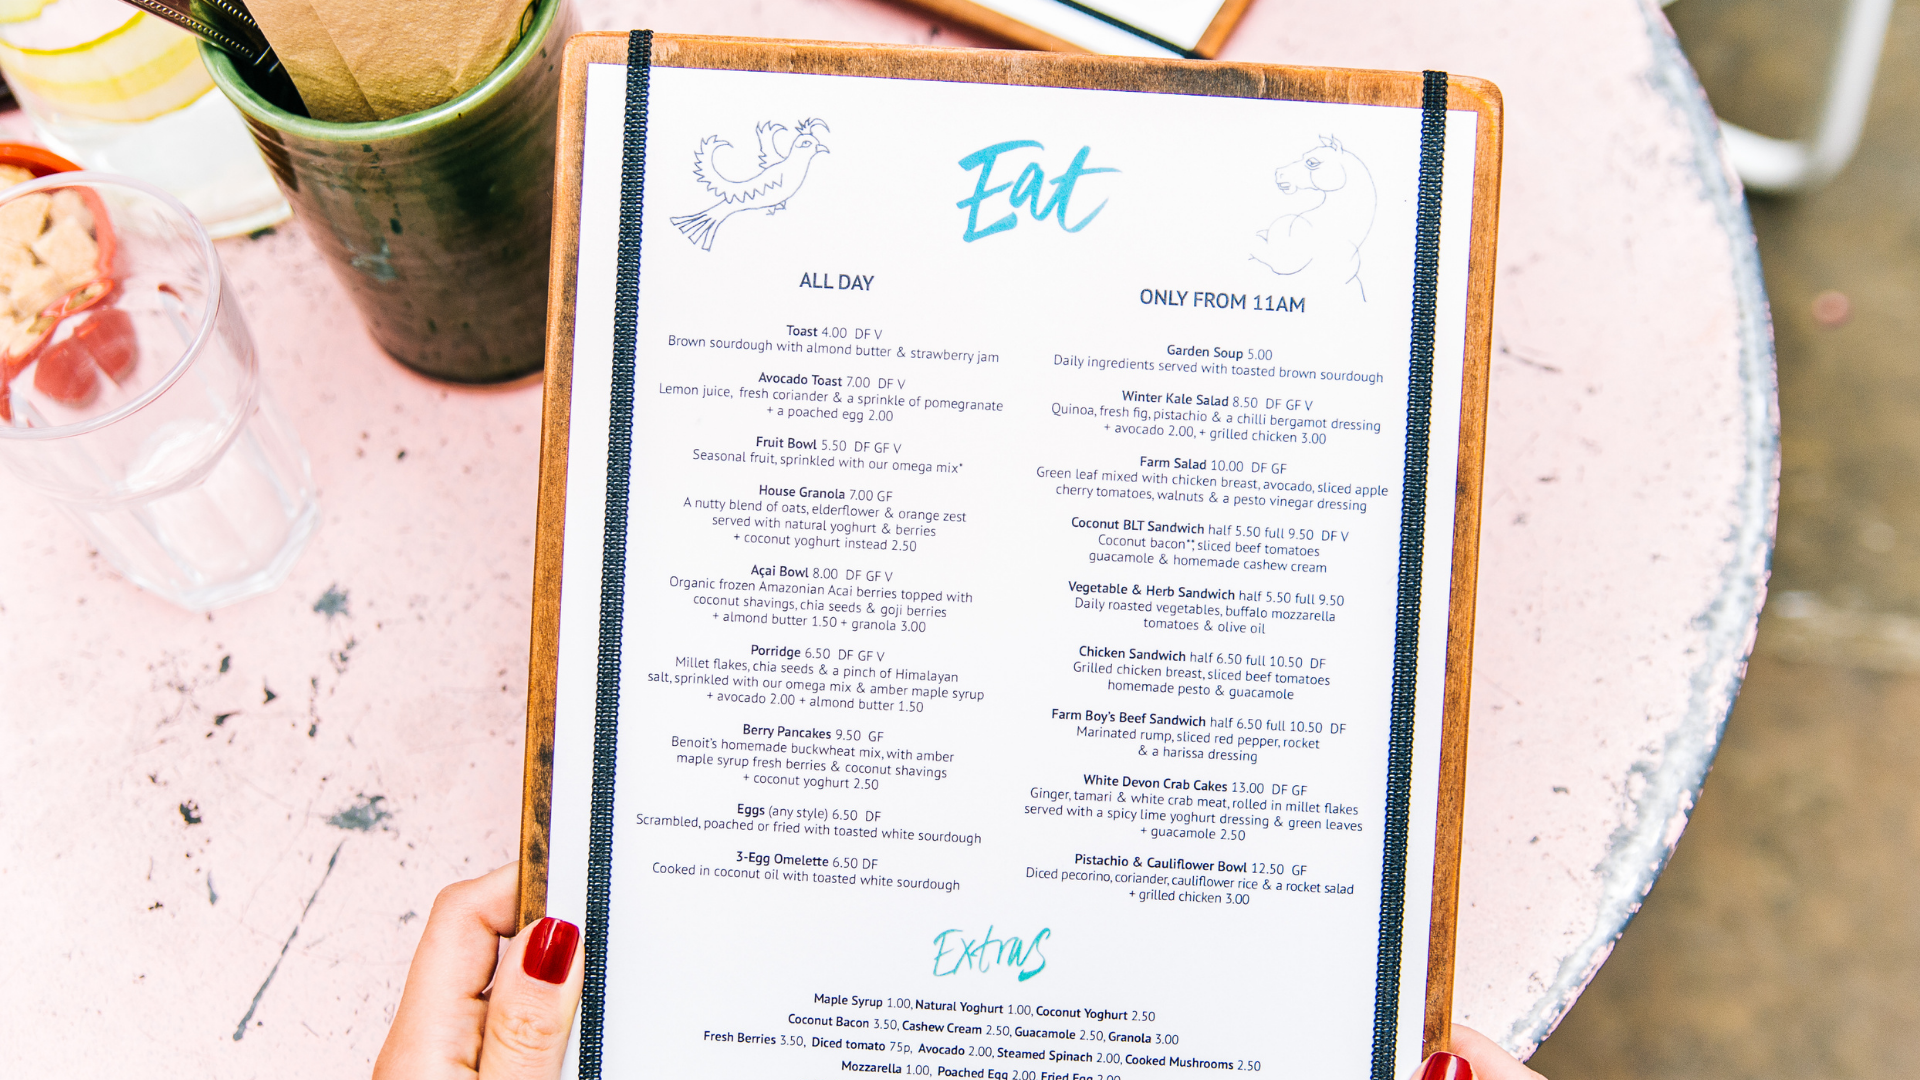 Eat
ALL DAY
Toast 4.00 DF V
Brown sourdough with almond butter & strawberry jam
Avocado Toast 7.00 DF V
Lemon juice, fresh coriander & a sprinkle of pomegranate
+ a poached egg 2.00
Fruit Bowl 5.50 DF GF V
Seasonal fruit, sprinkled with our omega mix*
House Granola 7.00 GF
A nutty blend of oats, elderflower & orange zest
served with natural yoghurt & berries
+ coconut yoghurt instead 2.50
Açai Bowl 8.00 DF GF V
Organic frozen Amazonian Acai berries topped with
coconut shavings, chia seeds & goji berries
+ almond butter 1.50 + granola 3.00
Porridge 6.50 DF GF V
Millet flakes, chia seeds & a pinch of Himalayan
salt, sprinkled with our omega mix & amber maple syrup
+ avocado 2.00 + almond butter 1.50
Berry Pancakes 9.50 GF
Benoit's homemade buckwheat mix, with amber
maple syrup fresh berries & coconut shavings
+ coconut yoghurt 2.50
Eggs (any style) 6.50 DF
Scrambled, poached or fried with toasted white sourdough
3-Egg Omelette 6.50 DF
Cooked in coconut oil with toasted white sourdough
ONLY FROM 11AM
Garden Soup 5.00
Daily ingredients served with toasted brown sourdough
Winter Kale Salad 8.50 DF GF V
Quinoa, fresh fig, pistachio & a chilli bergamot dressing
+ avocado 2.00, + grilled chicken 3.00
Farm Salad 10.00 DF GF
Green leaf mixed with chicken breast, avocado, sliced apple
cherry tomatoes, walnuts & a pesto vinegar dressing
Coconut BLT Sandwich half 5.50 full 9.50 DF V
Coconut bacon**, sliced beef tomatoes
guacamole & homemade cashew cream
Vegetable & Herb Sandwich half 5.50 full 9.50
Daily roasted vegetables, buffalo mozzarella
tomatoes & olive oil
Chicken Sandwich half 6.50 full 10.50 DF
Grilled chicken breast, sliced beef tomatoes
homemade pesto & guacamole
Farm Boy's Beef Sandwich half 6.50 full 10.50 DF
Marinated rump, sliced red pepper, rocket
& a harissa dressing
White Devon Crab Cakes 13.00 DF GF
Ginger, tamari & white crab meat, rolled in millet flakes
served with a spicy lime yoghurt dressing & green leaves
+ guacamole 2.50
Pistachio & Cauliflower Bowl 12.50 GF
Diced pecorino, coriander, cauliflower rice & a rocket salad
+ grilled chicken 3.00
Extras
Maple Syrup 1.00, Natural Yoghurt 1.00, Coconut Yoghurt 2.50
Coconut Bacon 3.50, Cashew Cream 2.50, Guacamole 2.50, Granola 3.00
Fresh Berries 3.50, Diced tomato 75p, Avocado 2.00, Steamed Spinach 2.00, Cooked Mushrooms 2.50
Mozzarella 1.00, Poached Egg 2.00, Fried Egg 2.00